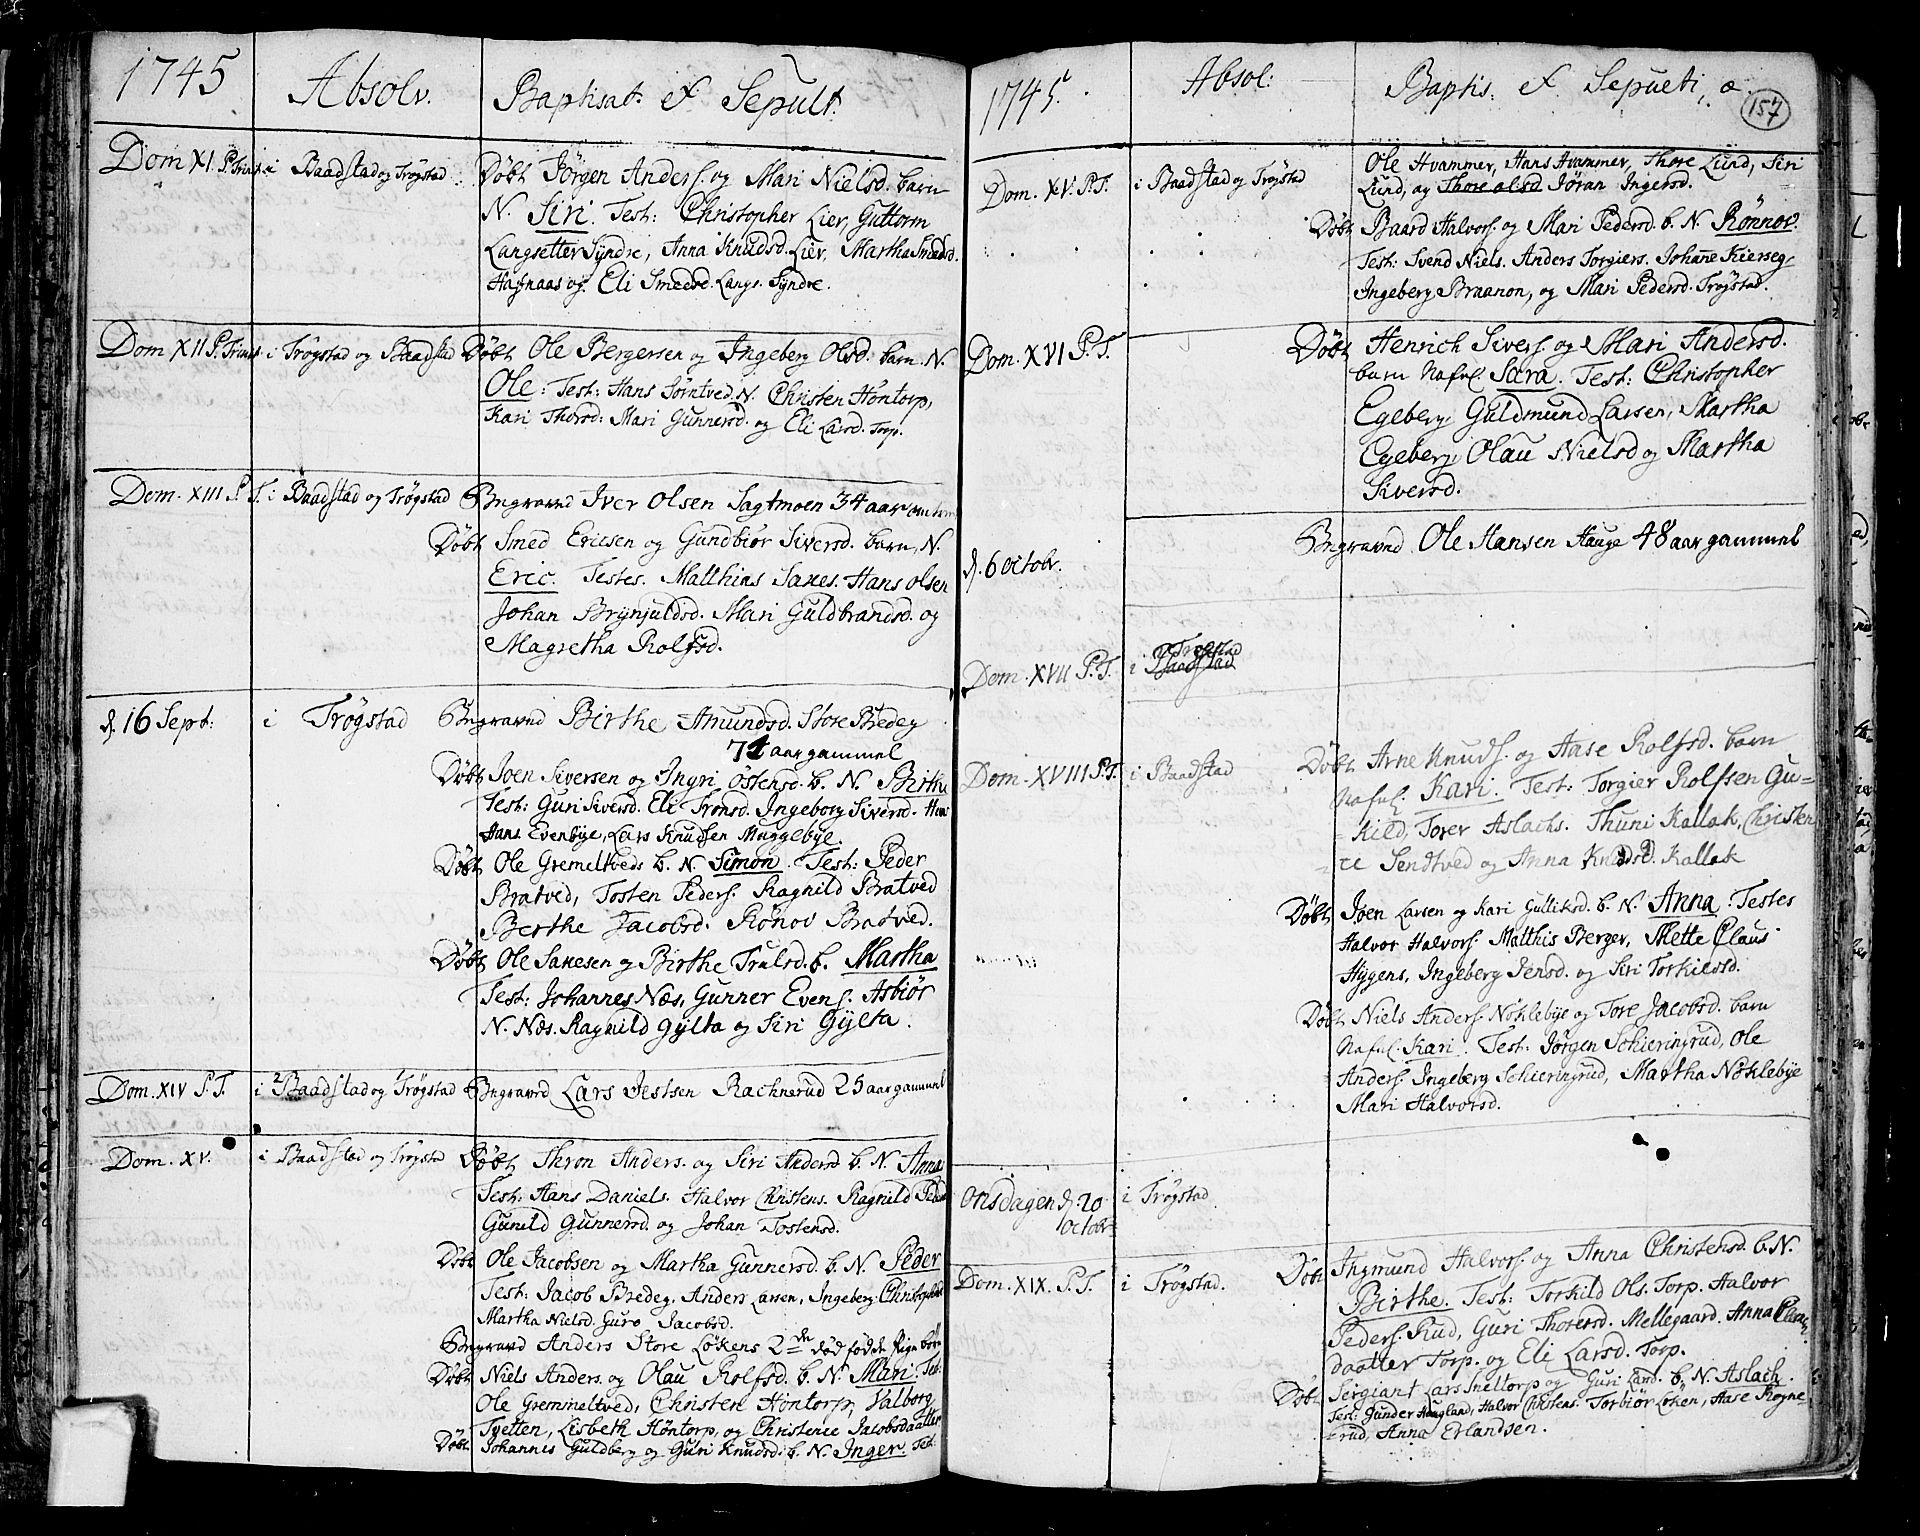 1745
Absolv.
Baptisat. et Sepult.
Dom XI. P. Trinit. i Baadstad og Trøgstad Døbt Jørgen Anders. og Mari Nielsd. barn
N. Siri. Test: Christopher Lier, Guttorm
Langsetter Syndre, Anna Knudsd. Lier, Martha Smedsd.
Hafnaas og Eli Smedsd. Langs. Syndre.
Dom XII P. Trinit i Trøgstad og Baadstad Døbt Ole Bergersen og Ingeberg Olsd: barn. N.
Ole: Test: Hans Sørntved. N. Christen Hontorp,
Kari Thorsd: Mari Gunnersd. og Eli Larsd. Torp.
Dom. XIII P. T. i Baadstad og Trøgstad Begravd Iver Olsen Sagtmoen 34 aar
Døbt Smed Ericsen og Gundbiør Siversd. barn, N.
Eric. Testes. Matthias Saxes. Hans Olsen
Johan Brynjuldsd. Mari Guldbrandsd. og
Magretha Rolfsd.
d. 16 Sept: i Trøgstad Begravd Birthe Amundsd. Store Bredeg
74 aar gammel
Døbt Joen Siversen og Ingri Østensd. b. N. Birthe
Test: Guri Siversd. Eli Tronsd. Ingeborg Siversd.
Hans Evenbye, Lars Knudsen Muggebye.
Døbt Ole Gremeltveds b. N. Simon. Test: Peder
Bratved, Tosten Peders. Ragnild Bratved
Birthe Jacobsd. Rønov Bratved.
Døbt Ole Saxesen og Birthe Trulsd. b. Martha
Test: Johannes Næs, Gunner Evens. Asbiør
N. Næs. Ragnild Gylta og Siri Gylta.
Dom. XIV P. T. i 2 Baadstad og 1 Trøgstad Begravd Lars Jestsen Rachnerud 25 aar gammel
Dom. XV. i Baadstad og Trøgstad Døbt Thron Anders. og Siri Andersd b. N. Anna
Test: Hans Daniels. Halvor Christens. Ragnild
Gunild Gunnersd. og Johan Tostensd.
Døbt Ole Jacobsen og Martha Gunnersd. b. N. Peder
Test: Jacob Bredeg, Anders Larsen, Ingeberg Christophd.
Martha Nielsd. Guro Jacobsd.
Begravd Anders Store Løkens 2de død fødde Pigebørn
Døbt Niels Anders. og Olau Rolfsd. b. N. Mari. Test.
Ole Gremmeltved, Christen Høntorp, Valborg
Tvetten, Lisbeth Høntorp, og Christence Jacobsdaatter
Døbt Johannes Guldberg og Guri Knudsd. b. N. Inger. Tst.
1745.
Absol:
Baptis: et Sepulti, æ.
157
Dom. XV. P. T. i Baadstad og Trøgstad
Ole Hvammer, Hans Hvammer, Thore Lund, Siri
Lund, og Thore olsd Jøran Ingersd.
Døbt Baard Halvors. og Mari Pedersd. b. N. Rønnov.
Test: Svend Niels. Anders Torgiers. Johanne Kierseg
Ingeberg Braanon, og Mari Pedersd. Trøgstad.
Dom. XVI P. T.
Døbt Henrich Sivers. og Mari Andersd.
barn Nafnl. Sara. Test: Christopher
Egeberg, Guldmund Larsen, Martha
Egeberg, Olau Nielsd og Martha
Siversd.
d. 6 Octobr.
Begravd Ole Hansen Hauge 48 aar gammel
Dom. XVII P. T. i Baadstad
Trøgstad
Dom. XVIII P. T. i Baadstad
Døbt Arne Knuds. og Aase Rolfsd. barn
Nafnl. Kari. Test: Torgier Rolfsen Gu=
=kild, Torer Aslachs. Thuni Kallak, Christen
=ce Sendtved og Anna Knudsd. Kallak
Døbt Joen Larsen og Kari Gulliksd. b. N. Anna. Testes
Halvor Halvors. Matthis Berger, Mette Claus
Hygens, Ingeberg Jensd. og Siri Torkildsd.
Døbt Niels Anders. Nøklebye og Tore Jacobsd. barn
Nafnl. Kari. Test: Jørgen Schieringrud, Ole
Anders. Ingeberg Schieringrud, Martha Nøklebye
Mari Halvorsd.
Onsdagen d. 20 i Trøgstad
Octobr.
Dom. XIX. P. T. i Trøgstad.
Døbt Ingmund Halvors. og Anna Christensd. b. N.
Birthe. Test: Torkild Ols. Torp. Halvor
Peders. Rud, Guri Thorersd. Mellegaard. Anna
daatter Torp. og Eli Larsd. Torp.
Døbt Sergiant Lars Sneltorp og Guri Land. b. N. Aslach.
Test: Gunder Haugland, Halvor Christens. Torbiør Løken, Aase Rogne=
=rud, Anna Erlandsen.